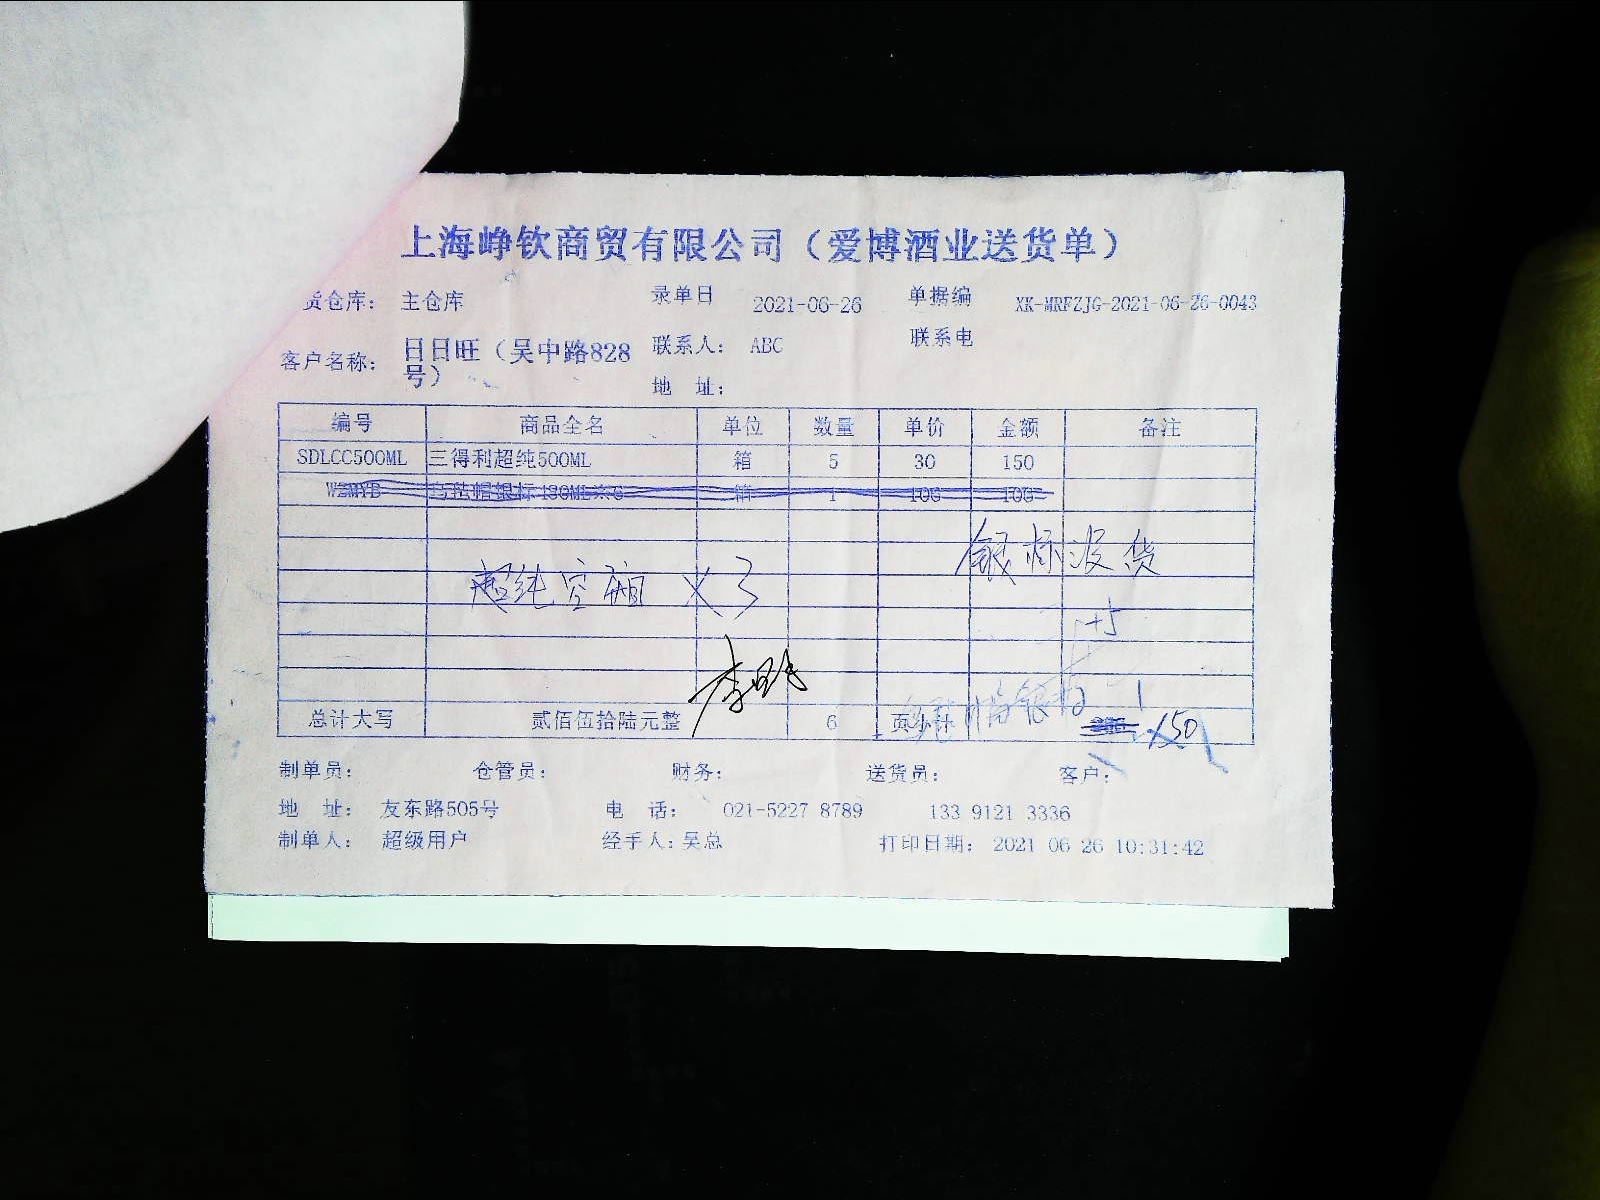 上海峥钦商贸有限公司（爱博酒业送货单）
货仓库： 主仓库 录单日 2021-06-26 单据编 XK-MRFZJG-2021-06-26-0043
客户名称： 日日旺（吴中路828号） 联系人： ABC 联系电
地 址：
编号 商品全名 单位 数量 单价 金额 备注
SDLCC500ML 三得利超纯500ML 箱 5 30 150
箱 1
银标没货
超纯空箱 X3
+5
总计大写 贰佰伍拾陆元整 6 页小计 150
制单员： 仓管员： 财务： 送货员： 客户：
地 址： 友东路505号 电 话： 021-5227 8789 133 9121 3336
制单人： 超级用户 经手人：吴总 打印日期： 2021 06 26 10:31:42